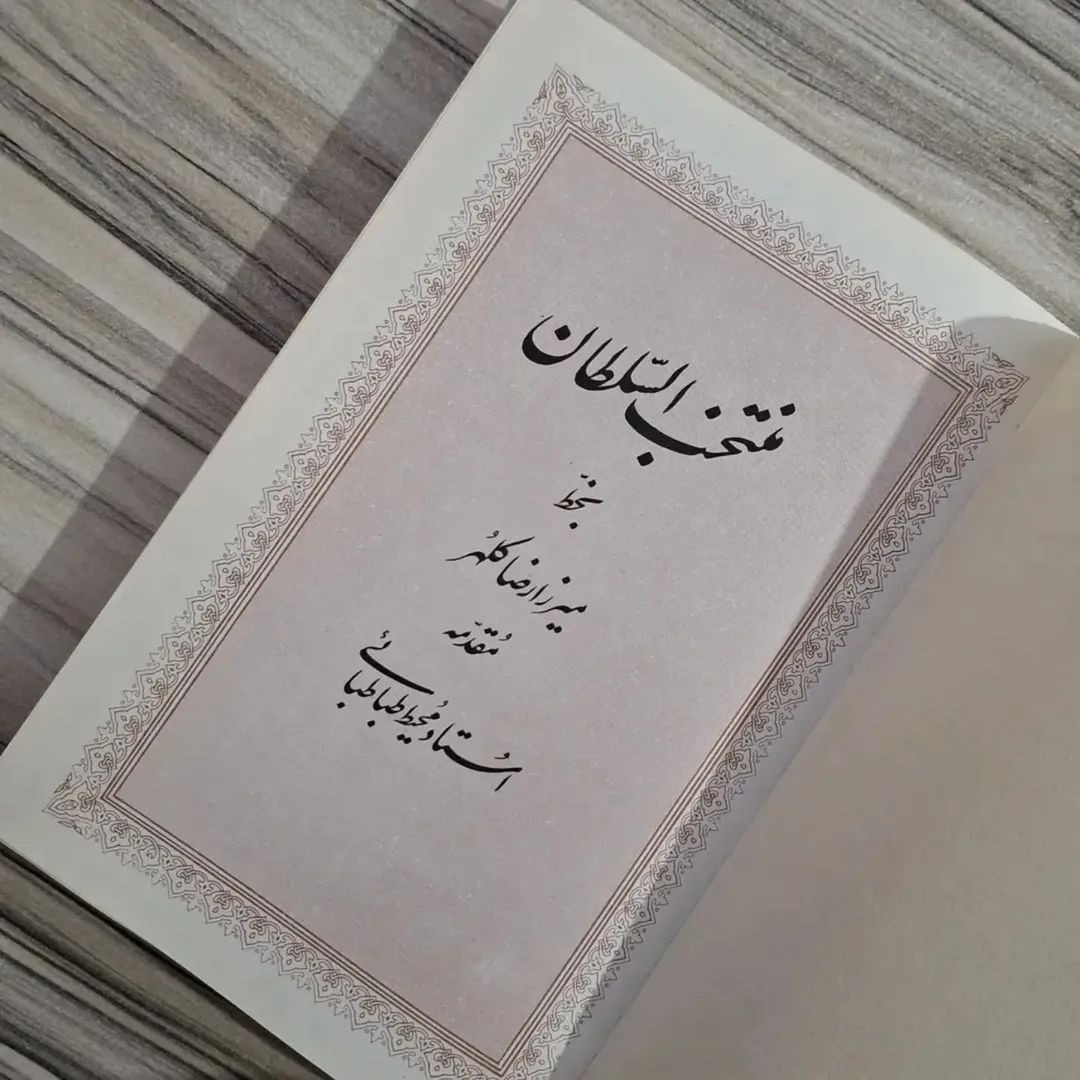 منتخب السّلطان
بخطّ
میرزا رضا کلهُر
مُقدّمه
اُستاد مُحیط طباطبائی